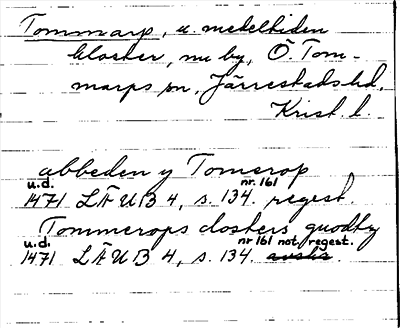 Tommarp, u. medeltiden
kloster, nu by, Ö. Tom-
marps sn, Järrestads hd,
Krist. l.
abbeden y Tomerop
u.d. nr. 161
1471 LÄUB 4, s. 134. regest.
Tommerops closters guodhz
u.d. nr 161 not. regest.
1471 LÄUB 4, s. 134.